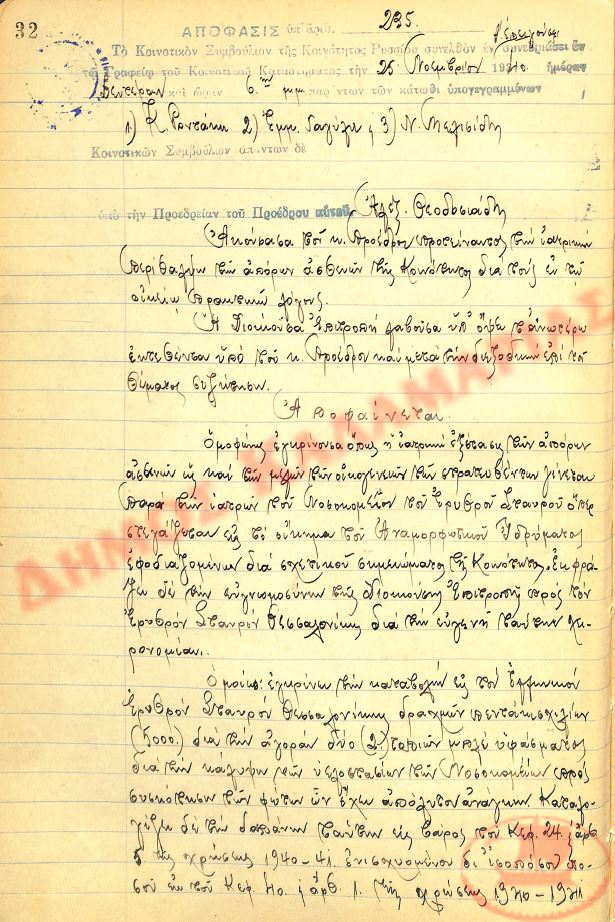 32
ΑΠΟΦΑΣΙΣ ὑπ' ἀριθ. 235.
Τὸ Κοινοτικὸν Συμβούλιον τῆς Κοινότητος Ρυσσίου συνελθὸν ἐν συνεδριάσει ἐν
τῷ Γραφείῳ τοῦ Κοινοτικοῦ Καταστήματος τὴν 25 Νοεμβρίου 1940. ἡμέραν
Δευτέραν καὶ ὥραν 6 μμ παρόντων τῶν κάτωθι ὑπογεγραμμένων
1) Κ. 2) Ἐμμ. 3) Ν. Μελισίδη
Κοινοτικῶν Συμβούλων ἁπάντων δὲ
ὑπὸ τὴν Προεδρείαν τοῦ Προέδρου αὐτοῦ Ἀλεξ. Θεοδοσιάδη
Ἀκούσασα τοῦ κ. Προέδρου προτείναντος τὴν ἰατρικὴν
περίθαλψιν τῶν ἀπόρων ἀσθενῶν τῆς Κοινότητος διὰ τοὺς ἐν τῷ
οἰκείῳ πρακτικῷ λόγους.
Ἡ Διοικοῦσα Ἐπιτροπὴ λαβοῦσα ὑπ' ὄψει τ' ἀνωτέρω
ἐκτεθέντα ὑπὸ τοῦ κ. Προέδρου καὶ μετὰ τὴν διεξοδικὴν ἐπὶ τοῦ
θέματος συζήτησιν.
Ἀποφαίνεται.
Ὁμοφώνως ἐγκρίνουσα ὅπως ἡ ἰατρικὴ ἐξέτασις τῶν ἀπόρων
ἀσθενῶν ὡς καὶ τῶν μελῶν τῶν οἰκογενειῶν τῶν στρατευθέντων γίνεται
παρὰ τῶν ἰατρῶν τοῦ Νοσοκομείου τοῦ Ἐρυθροῦ Σταυροῦ ὅπερ
στεγάζεται εἰς τὸ οἴκημα τοῦ Ἀναμορφωτικοῦ Ἱδρύματος
ἐφοδιαζομένων διὰ σχετικοῦ σημειώματος τῆς Κοινότητος. Ἐκφρά-
ζει δὲ τὴν εὐγνωμοσύνην τῆς ἡ Διοικοῦσα Ἐπιτροπὴ πρὸς τὸν
Ἐρυθρὸν Σταυρὸν Θεσσαλονίκης διὰ τὴν εὐγενῆ ταύτην χει-
ρονομίαν.
Ὁμοίως ἐγκρίνει τὴν καταβολὴν εἰς τὸν Ἑλληνικὸν
Ἐρυθρὸν Σταυρὸν Θεσσαλονίκης δραχμῶν πεντάκις χιλίων
(5000.) διὰ τὴν ἀγορὰν δύο (2) τοπιῶν μπλὲ ὑφάσματος
διὰ τὴν κάλυψιν τῶν ὑελοστασίων τῶν Νοσοκομείων πρὸς
συσκότησιν τῶν φώτων ὧν ἔχει ἀπόλυτον ἀνάγκην. Καταλο-
γίζει δὲ τὴν δαπάνην ταύτην εἰς βάρος τοῦ Κεφ. 24 ἀρθ.
5 τῆς χρήσεως 1940-41. ἐνισχυομένου δι' ἰσοπόσου πο-
σοῦ ἐκ τοῦ Κεφ. 40 ἀρθ. 1. τῆς χρήσεως 1940-1941
ΔΗΜΟΣ ΚΑΛΑΜΑΡΙΑΣ